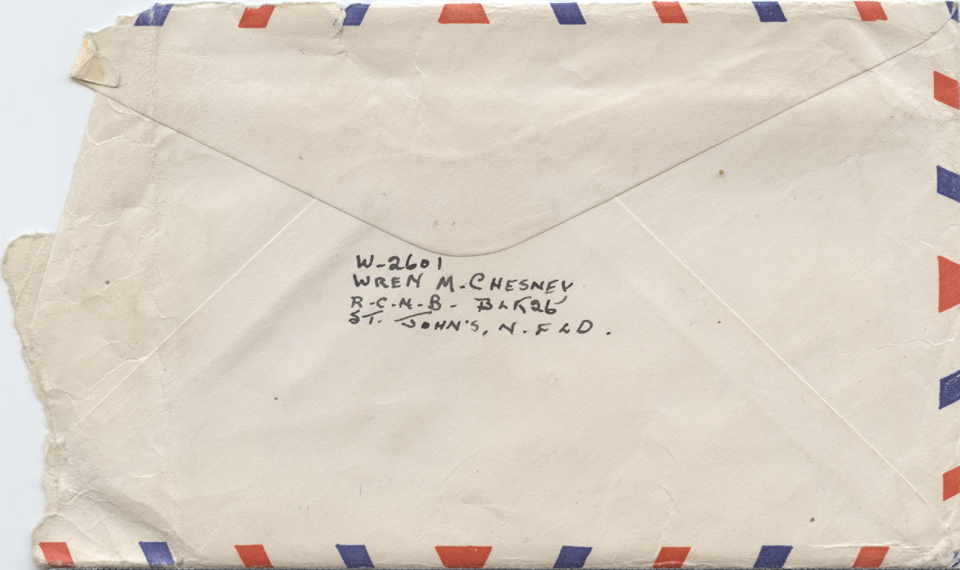 W-2601
WREN M. CHESNEY
R-C-N-B- BLK 26
ST. JOHN'S, N.FLD.